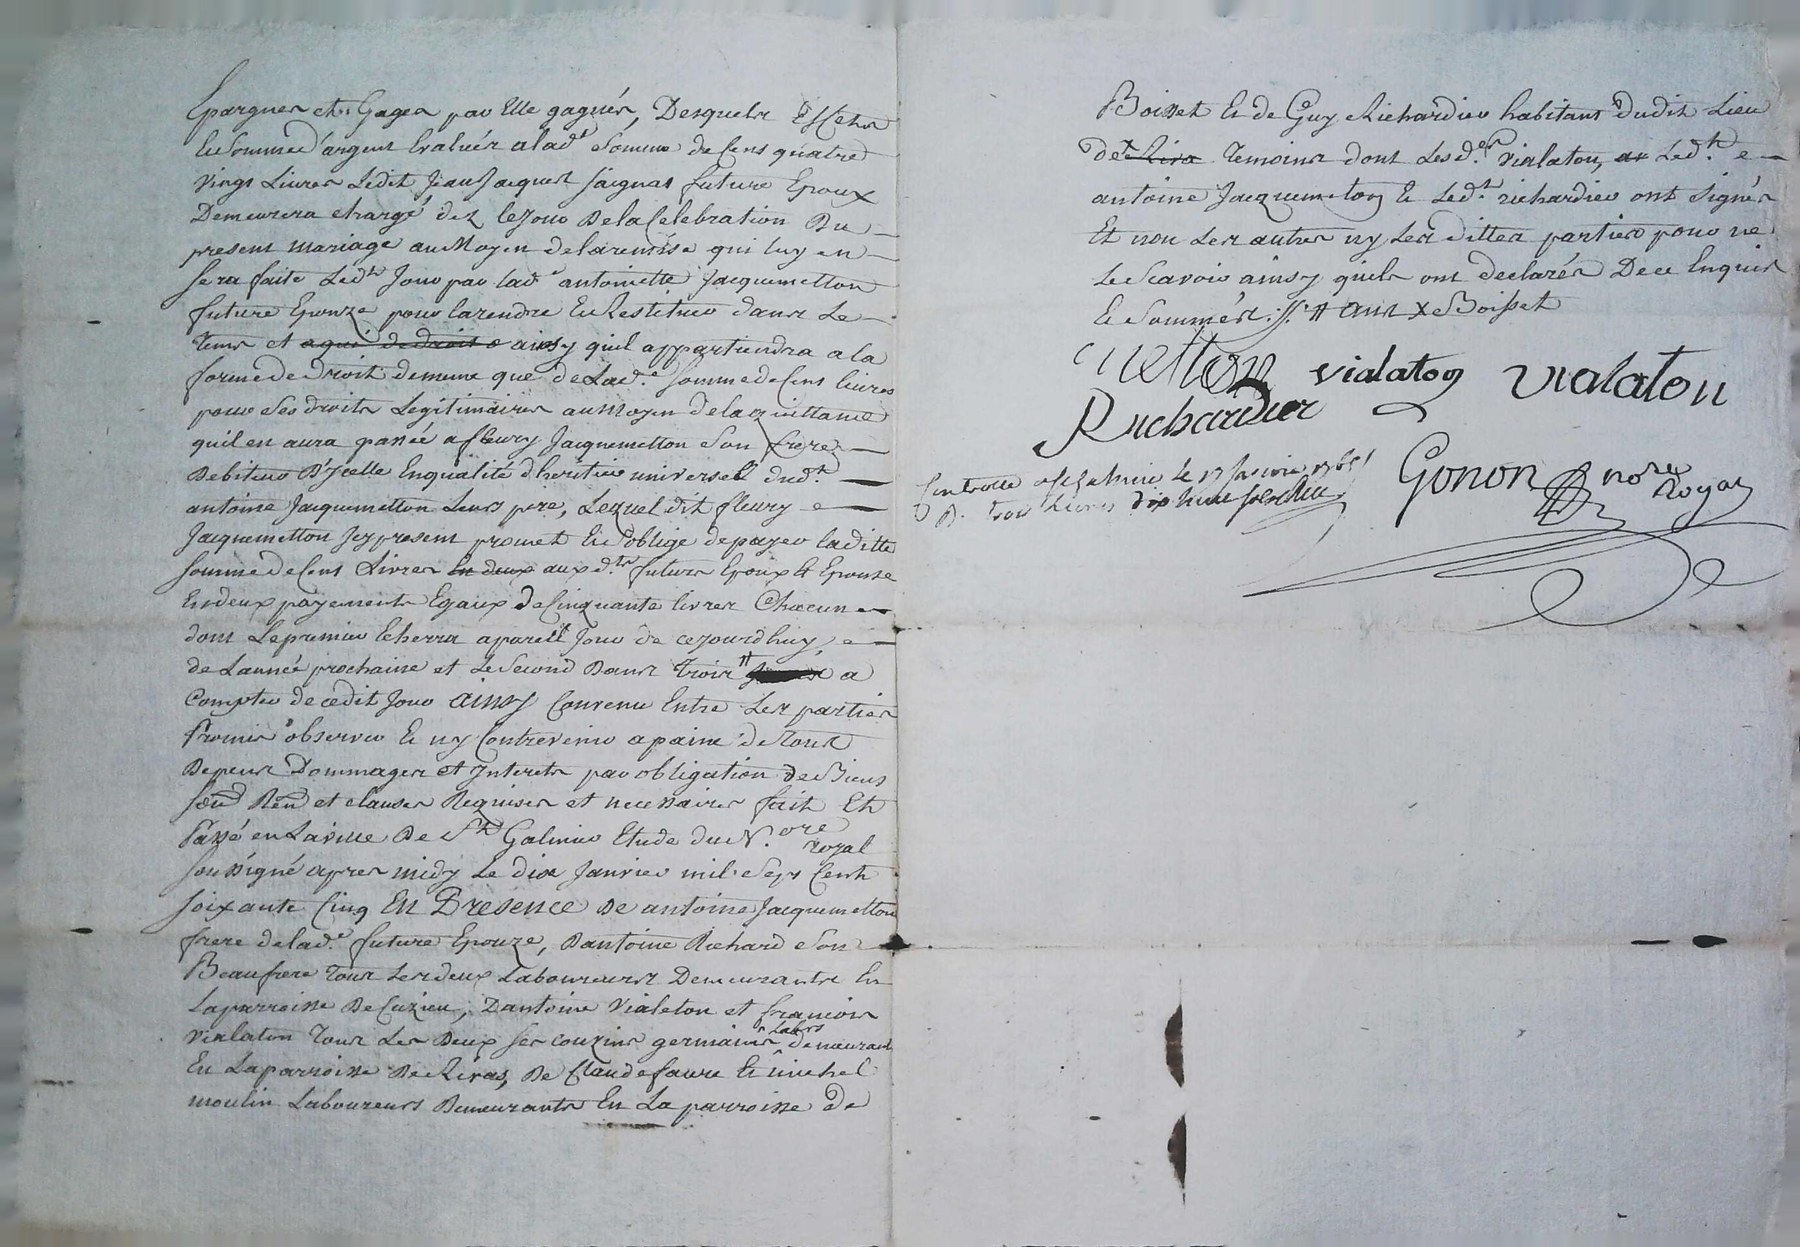 Epargnes et Gages par Elle gagnés, Desquels Effets
Et Somme d'argent Evalués a lad.e Somme de Cens quatre
vings Livres Ledit Jean Jacques saignas future Epoux
Demeurera chargé dez lejour De la Celebration Du
present mariage au Moyen de la remise qui luy en
sera faite Led.t Jour par lad.e antoinette Jacquemetton
future Epouze pour la rendre Et Restituer dans Le
Tems et a qui de droit ainsy quil appartiendra a la
forme de Droit demême que de Lad.e somme de Cens livres
pour Ses droits Legitimaires au moyen de la quittance
quil en aura passée a fleury Jacquemetton Son frere
Debiteur D'Jcelle En qualité d'heritier universel dud.t
antoine Jacquemetton Leurs pere, Lequel dit fleury
Jacquemetton Jcy present promet Et S'oblige de payer la ditte
somme de Cens Livres en deux aux d.ts futurs Epoux Et Epouze
En deux payements Egaux de Cinquante livres Chacun
dont Le premier Echerra a pareil Jour de cejourdhuy,
de Lannée prochaine et Le Second Dans trois a
Compter de cedit Jour ainsy Convenu Entre Les parties
Promis observer Et ny Contrevenir a paine de tous
Depens Dommages et Interets par obligation de Biens
soum Ren et clauses Requises et necessaires fait Et
Passé en La ville De S.t Galmier Etude du N.ore royal
sousigné apres midy Le dix Janvier mil Sept Cents
soixante Cinq En Presence De antoine Jacquemetton
frere de lad.e future Epouze, Dantoine Richard Son
Beaufrere tous Les deux Laboureurs Demeurants En
La parroisse De Cuzieu, Dantoine Vialeton et francois
Vialaton tous Les Deux ses couzins germains Labrs demeurant
En La parroisse De Rivas, De Claude faure Et michel
moulin Laboureurs Demeurants En La parroisse de
Boisset Et de Guy Richardier habitant dudit Lieu
de Riva Temoins dont Les d.es Vialaton, Led.t
antoine Jacquemeton Et Led.t richardier ont signés
Et non Les autres ny Les dittes parties pour ne
Le Scavoir ainsy quils ont declarés De ce Enquis
Et Sommés. // ans x Boisset
metton vialaton vialaton
Richardier
Controllé a St Galmier le 17 Janvier 1765
R. trois Livres dix huit sols
Gonon nore royal